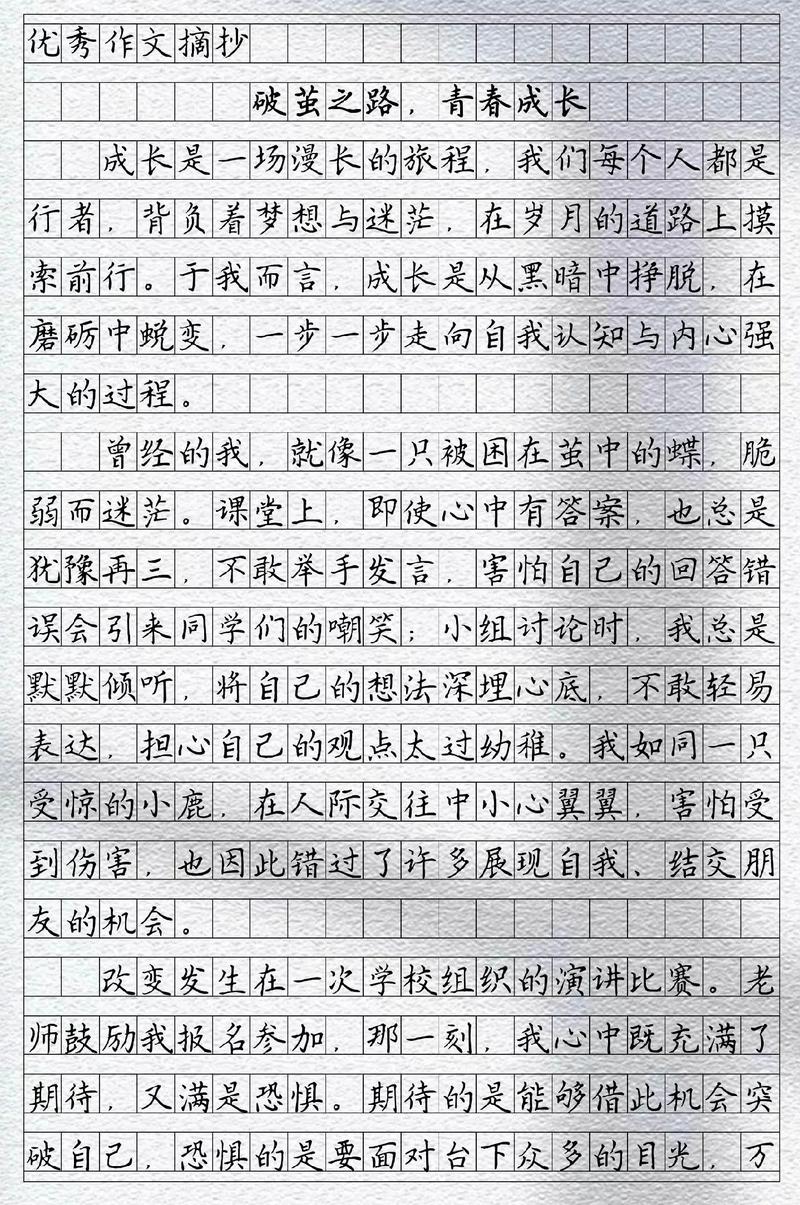 优秀作文摘抄
破茧之路，青春成长
成长是一场漫长的旅程，我们每个人都是
行者，背负着梦想与迷茫，在岁月的道路上摸
索前行。于我而言，成长是从黑暗中挣脱，在
磨砺中蜕变，一步一步走向自我认知与内心强
大的过程。
曾经的我，就像一只被困在茧中的蝶，脆
弱而迷茫。课堂上，即使心中有答案，也总是
犹豫再三，不敢举手发言，害怕自己的回答错
误会引来同学们的嘲笑；小组讨论时，我总是
默默倾听，将自己的想法深埋心底，不敢轻易
表达，担心自己的观点太过幼稚。我如同一只
受惊的小鹿，在人际交往中小心翼翼，害怕受
到伤害，也因此错过了许多展现自我、结交朋
友的机会。
改变发生在一次学校组织的演讲比赛。老
师鼓励我报名参加，那一刻，我心中既充满了
期待，又满是恐惧。期待的是能够借此机会突
破自己，恐惧的是要面对台下众多的目光，万